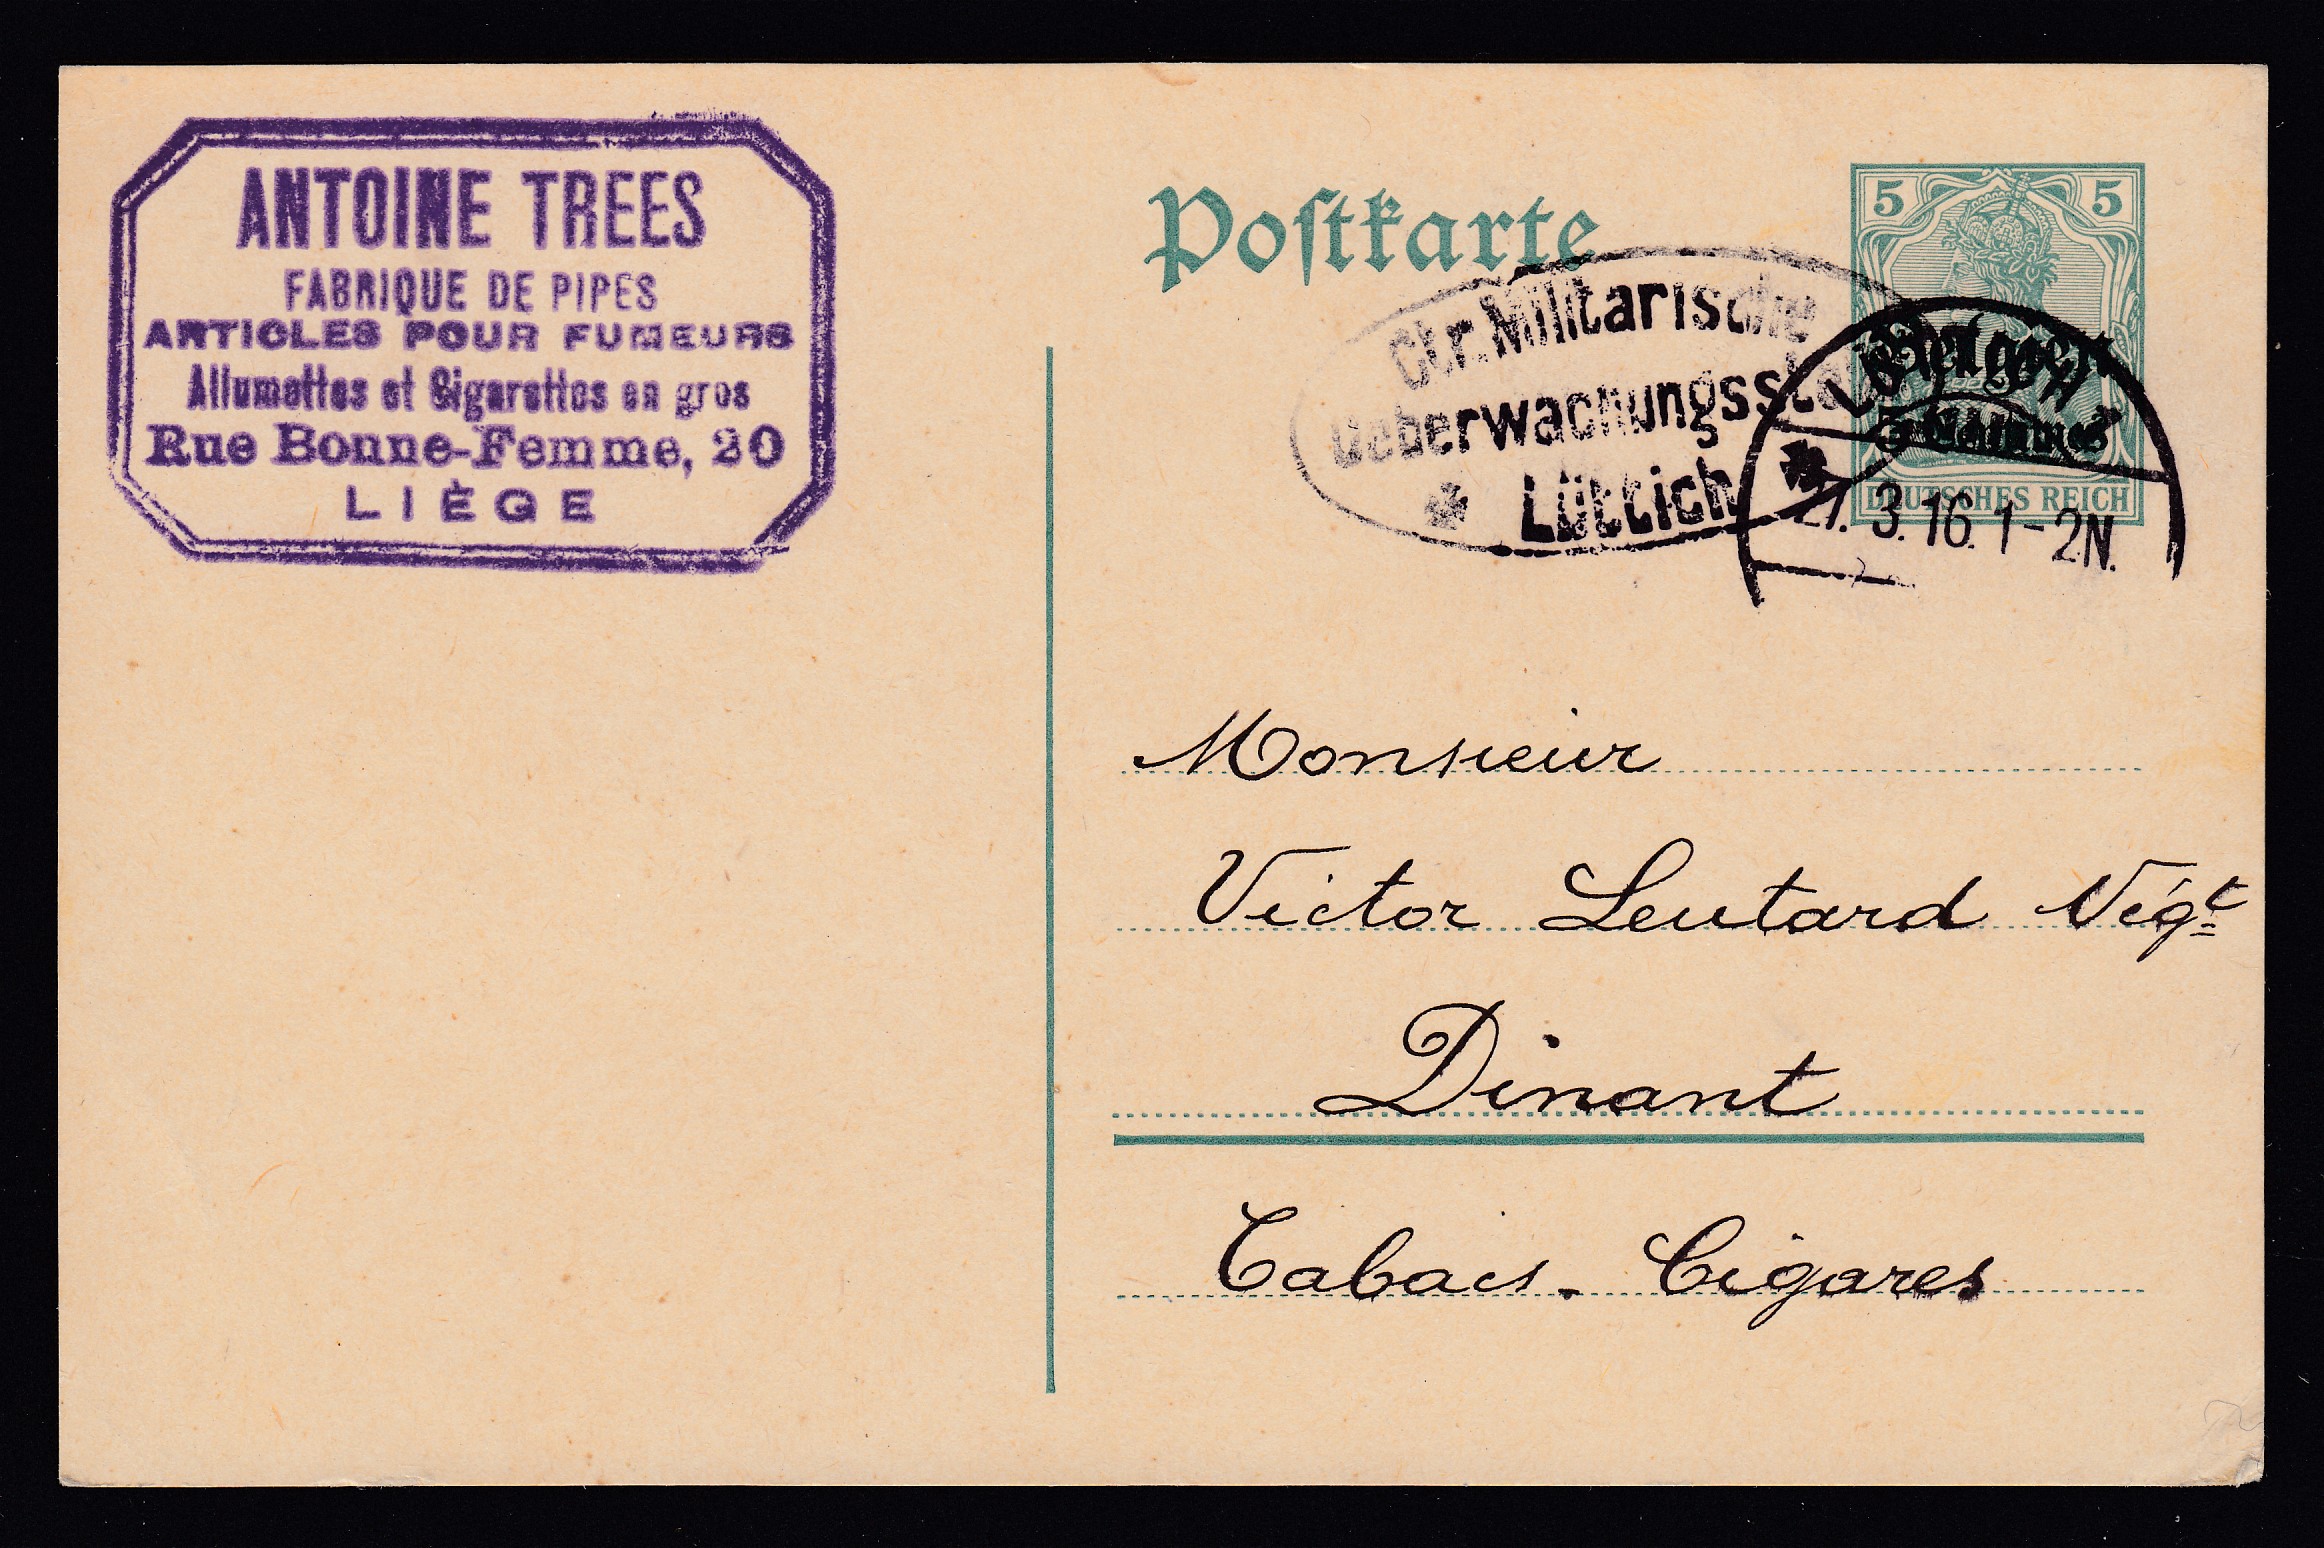 ANTOINE TREES
FABRIQUE DE PIPES
ARTICLES POUR FUMEURS
Allumettes et Cigarettes en gros
Rue Bonne-Femme, 20
LIÈGE
Postkarte
5 5
Belgien
5 Centimes
DEUTSCHES REICH
Militärische
Ueberwachungsst
Lüttich
3.16. 1-2N.
Monsieur
Victor Leutard Négt
Dinant
Tabacs. Cigares